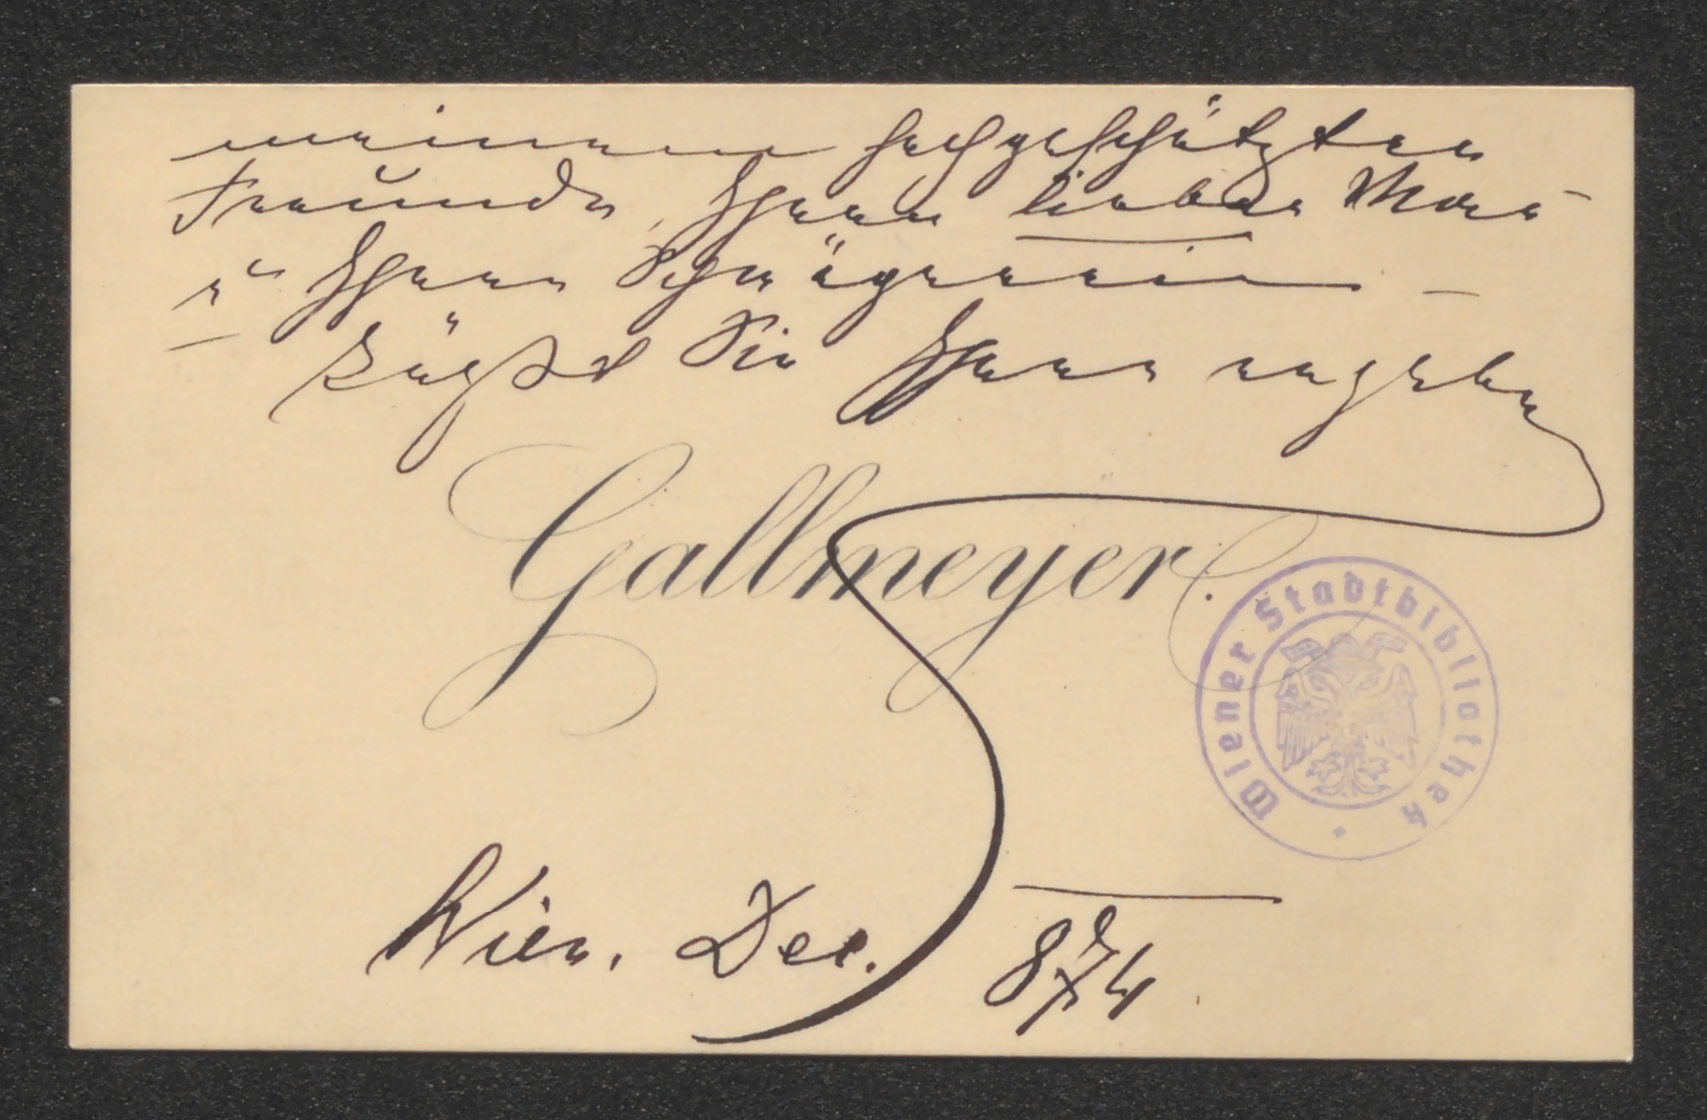 meinem hochgeschätzten
Freunde, Ihrer lieben Mama
u Ihrer Schwägerin –
Küßt Sie Ihre ergebene
Gallmeyer.
Wiener Stadtbibliothek
Wien. Dec. 874.